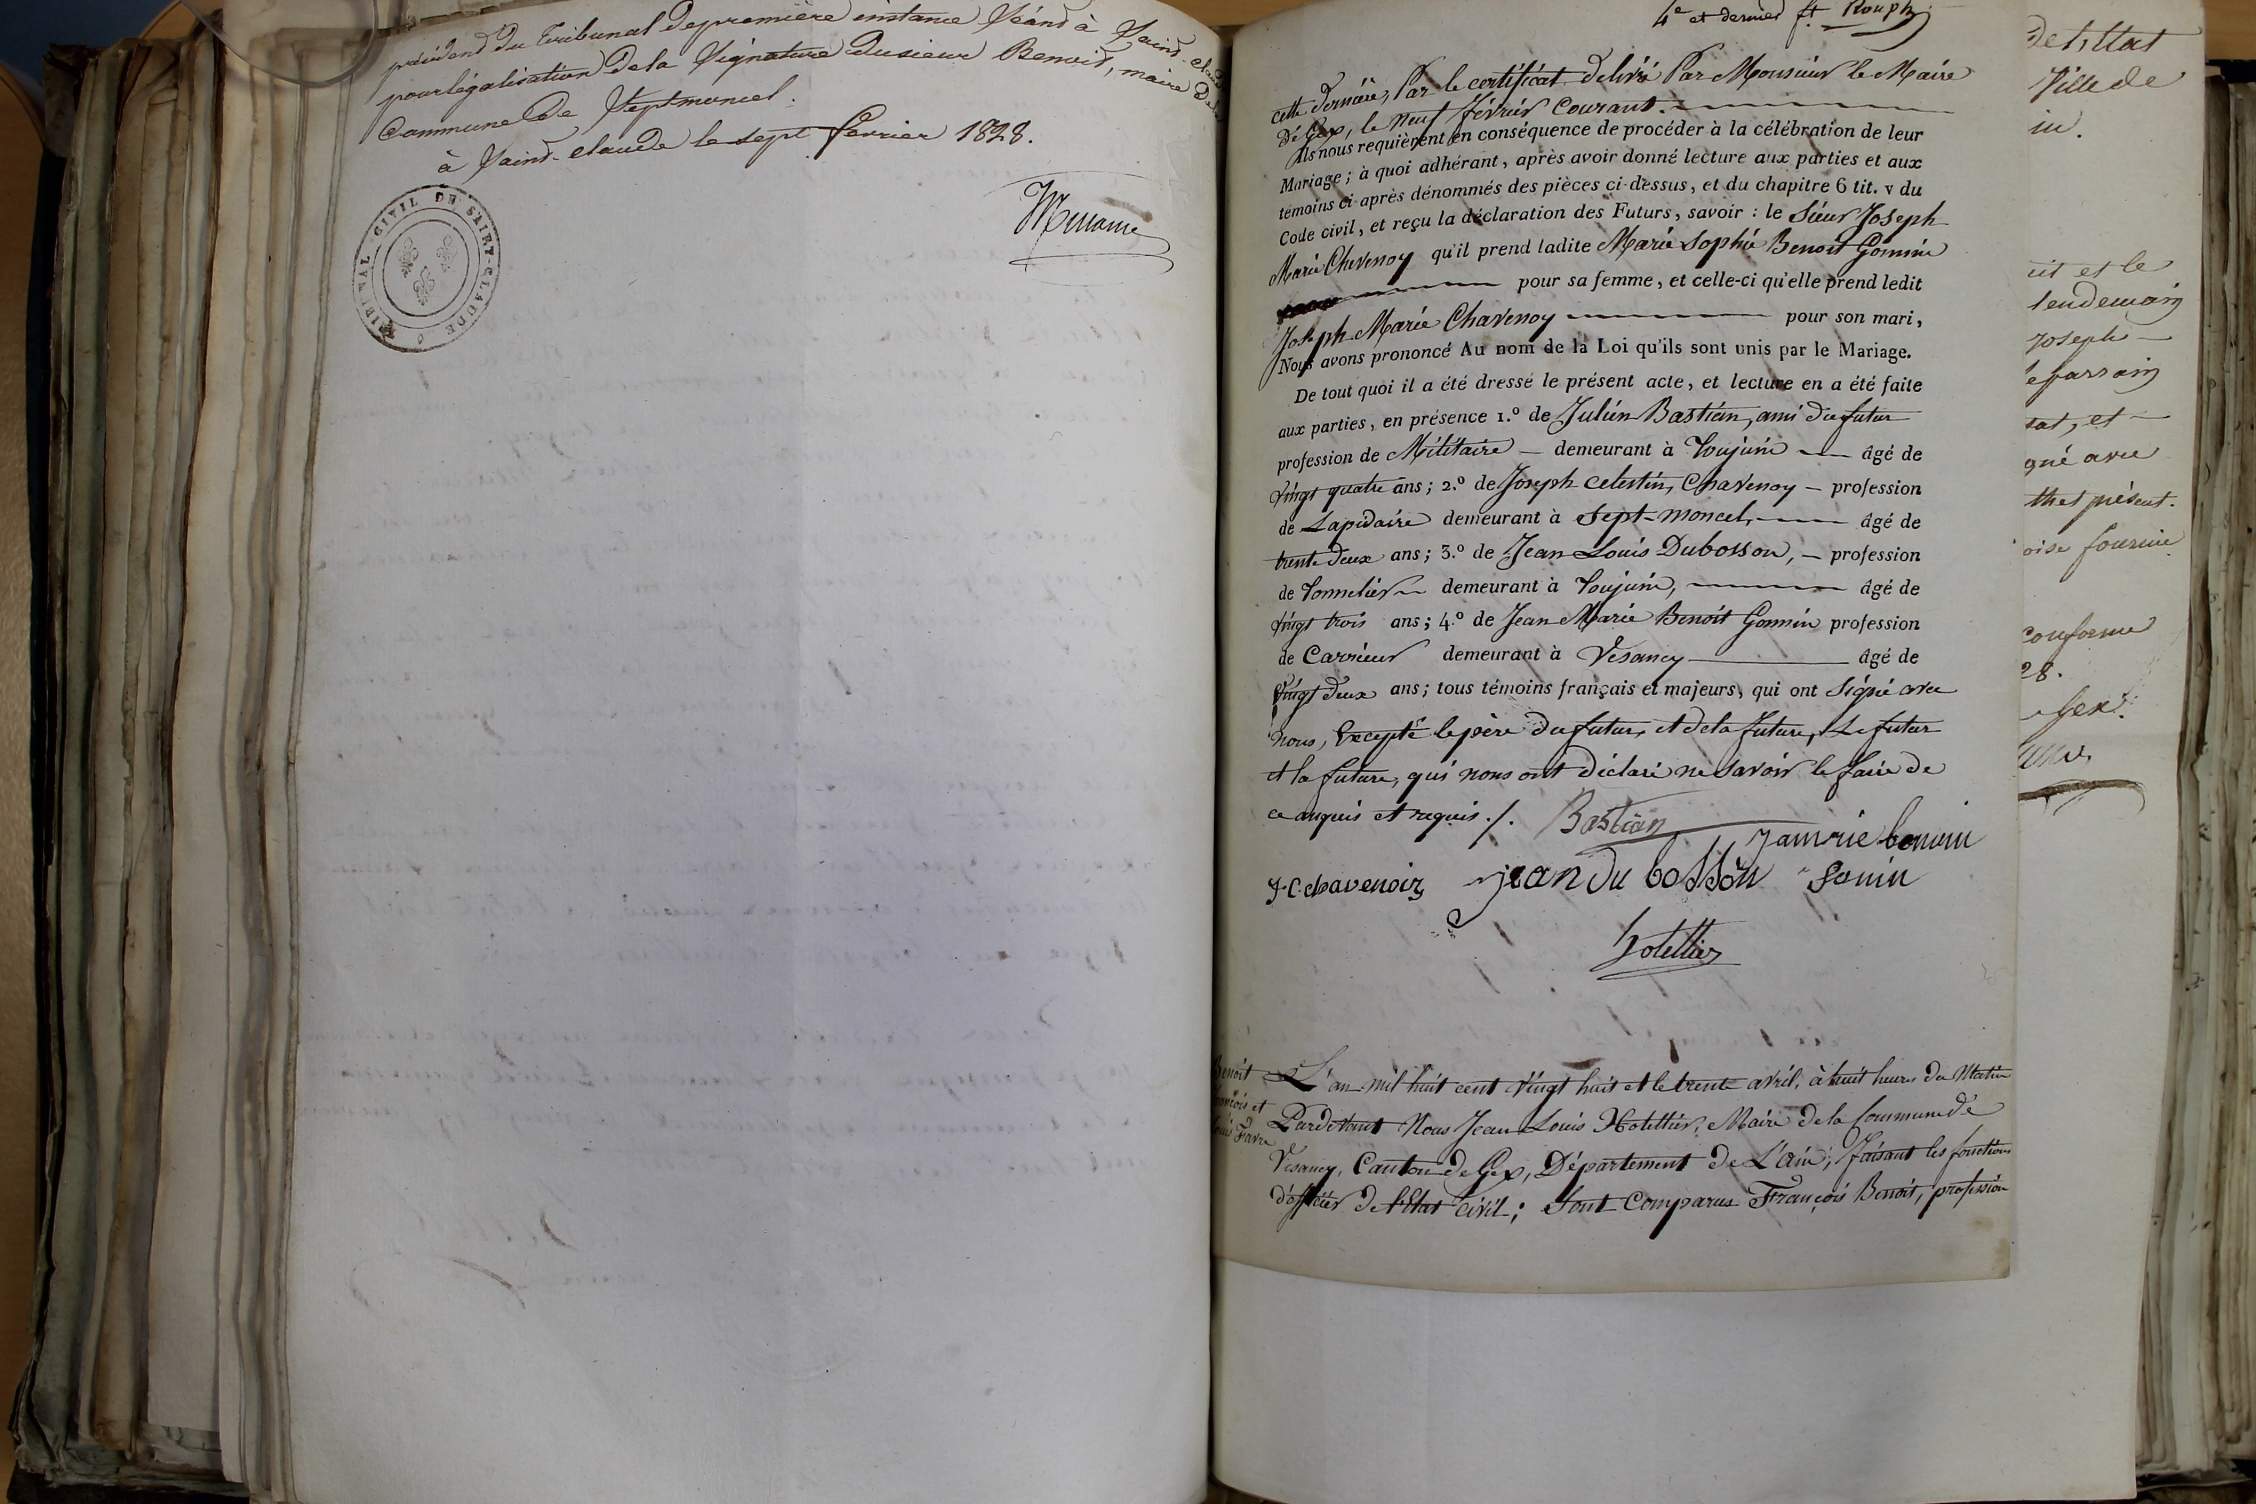 président du Tribunal de première instance séand à Saind-claude
pour légalisation de la signature du sieur Benoit, maire de la
Commune de Septmoncel.
à Saind-claude le sept fevrier 1828.
TRIBUNAL CIVIL DE SAINT-CLAUDE
4e et dernier ft. Rouph
cette dernière, Par le certificat delivré Par Monsieur le Maire
De Gex, le neuf février courant.
Ils nous requièrent en conséquence de procéder à la célébration de leur
Mariage; à quoi adhérant, après avoir donné lecture aux parties et aux
témoins ci-après dénommés des pièces ci-dessus, et du chapitre 6 tit. v du
Code civil, et reçu la déclaration des Futurs, savoir : le sieur Joseph
Marie Chevenoy qu'il prend ladite Marie Sophie Benoit Gonnin
pour sa femme, et celle-ci qu'elle prend ledit
Joseph Marie Chavenoy pour son mari,
Nous avons prononcé Au nom de la Loi qu'ils sont unis par le Mariage.
De tout quoi il a été dressé le présent acte, et lecture en a été faite
aux parties, en présence 1.º de Julien Bastian, ami du futur
profession de Militaire — demeurant à Toujuin — âgé de
vingt quatre ans; 2.º de Joseph celestin, Chavenoy — profession
de Lapidaire demeurant à Sept-moncel, — âgé de
trente deux ans; 3.º de Jean Louis Dubosson, — profession
de Tonnelier demeurant à Toujuin, — âgé de
vingt trois ans; 4.º de Jean Marie Benoit Gonnin profession
de Carrieur demeurant à Vesancy — âgé de
vingt deux ans; tous témoins français et majeurs, qui ont signé avec
nous, Excepté le père du futur, et de la future, Le futur
et la future, qui nous ont déclaré ne savoir le faire de
ce anquis et requis ./. Bastian
J.C. chavenoix jean du bosson jamrie benoui
gonin
hotellier
Benoit
françois et
Favre
L'an mil huit cent vingt huit et le trente avril, à huit heures du Matin
Pardevant Nous Jean Louis Hotellier, Maire de la Commune de
Vesancy, Canton de Gex, Département de L'ain; faisant les fonctions
d'officier de l'Etat Civil; Sont Comparus François Benoit, profession
de l'Etat
Ville de
in.
uit et le
lendemain
Joseph —
le parrain
sat, et —
gné avec
thet présent.
oise fournie
conforme
28.
Gex.